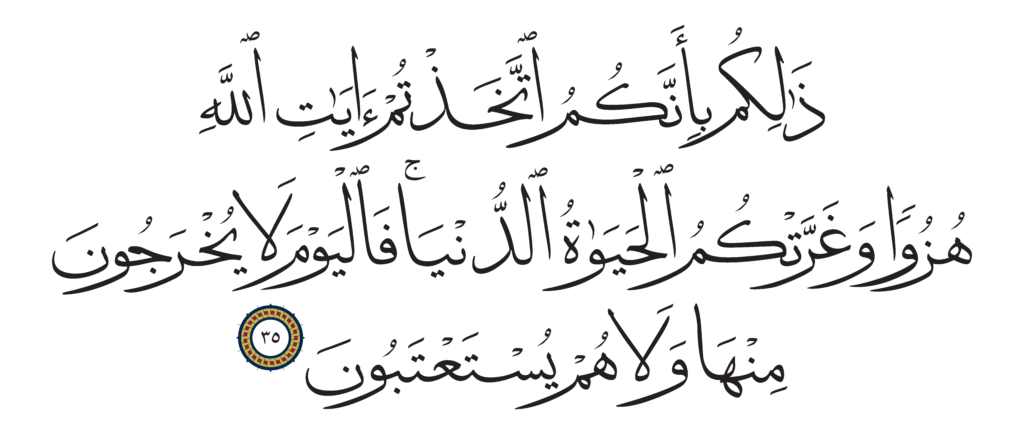 ذَٰلِكُم بِأَنَّكُمُ ٱتَّخَذْتُمْ ءَايَـٰتِ ٱللَّهِ
هُزُوًا وَغَرَّتْكُمُ ٱلْحَيَوٰةُ ٱلدُّنْيَا ۚ فَٱلْيَوْمَ لَا يُخْرَجُونَ
مِنْهَا وَلَا هُمْ يُسْتَعْتَبُونَ ٣٥